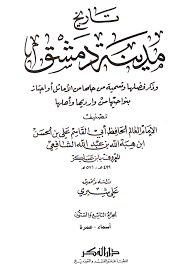 تاريخ
مدينة دمشق
وذكر فضلها وتسمية من حلها من الأماثل أو اجتاز
بنواحيها من وارديها وأهلها
تصنيف
الإمام العالم الحافظ أبي القاسم علي بن الحسن
ابن هبة الله بن عبد الله الشافعي
المعروف بابن عساكر
٤٩٩ هـ - ٥٧١ هـ
دراسة وتحقيق
علي شيري
الجزء التاسع والستون
أسماء - عمرة
دار الفكر